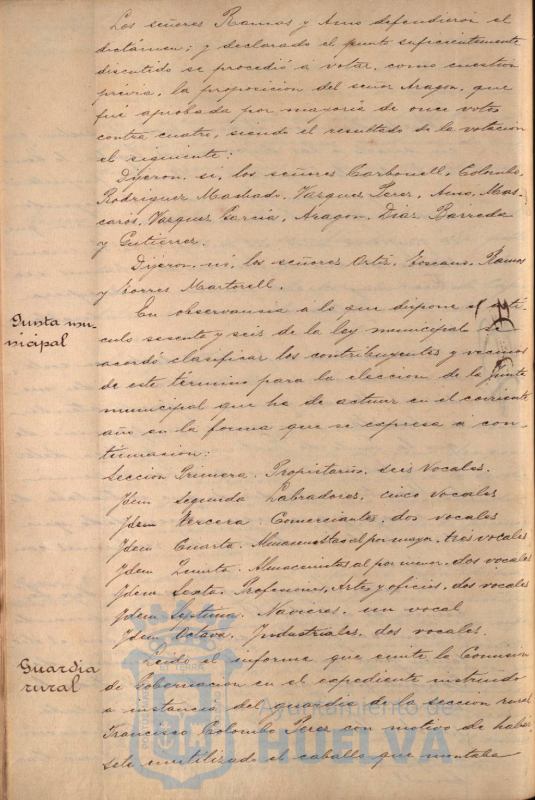 Los señores Ramos y Amo defendieron el
dictámen; y declarado el punto suficientemente
discutido se procedió á votar, como cuestion
previa, la proposicion del señor Aragon, que
fué aprobada por mayoría de once votos
contra cuatro, siendo el resultado de la votacion
el siguiente:
Dijeron, si, los señores Carbonell, Colombo,
Rodriguez Machado, Vazquez Perez, Amo, Mas-
carós, Vazquez Garcia, Aragon, Diaz Barreda
y Gutierrez.
Dijeron, nó, los señores Ortiz, Toscano, Ramos
y Torres Martorell.
Junta mu-
nicipal
En observansia á lo que dispone el artí-
culo sesenta y seis de la ley municipal se
acordó clasificar los contribuyentes y vecinos
de este termino para la eleccion de la Junta
municipal que ha de actuar en el corriente
año en la forma que se expresa á con-
tinuacion:
Seccion Primera. Propietarios, seis Vocales.
Idem Segunda Labradores, cinco vocales
Idem Tercera. Comerciantes, dos vocales
Idem Cuarta. Almacenistas al por mayor, tres vocales
Idem Quinta. Almacenistas al por menor, dos vocales
Idem Sexta. Profesiones, Artes y oficios, dos vocales
Idem Septima. Navieros, un vocal
Idem Octava. Industriales, dos vocales.
Guardia
rural
Leido el informe que emite la Comision
de Gobernacion en el expediente instruido
a instancia del guardia de la seccion rural
Francisco Colombo Perez con motivo de haber
sele inutilizado el caballo que montaba
Ayuntamiento de
HUELVA